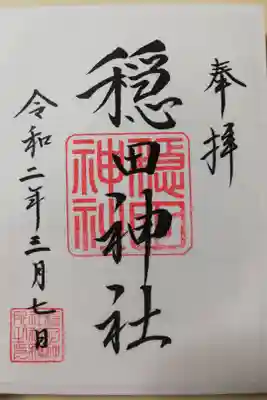 奉拝
穏田神社
隠田神社
令和二年三月七日